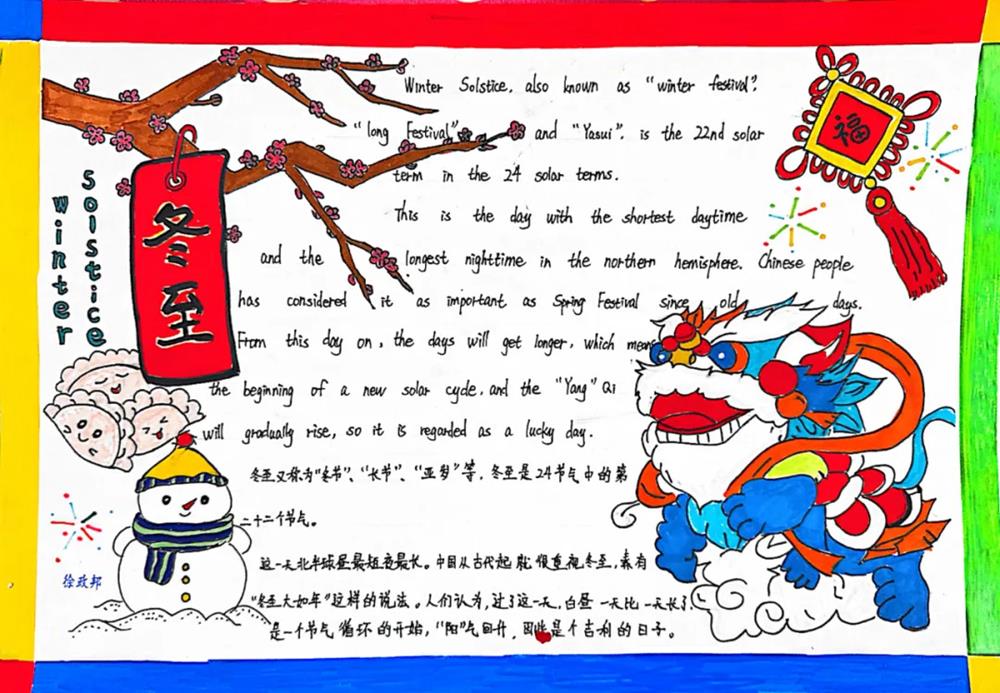 Winter Solstice, also known as "winter festival".
"long Festival" and "Yasui". is the 22nd solar
term in the 24 solar terms.
This is the day with the shortest daytime
and the longest nighttime in the northern hemisphere. Chinese people
has considered it as important as Spring Festival since old days.
From this day on, the days will get longer, which means
the beginning of a new solar cycle, and the "Yang" Qi
will gradually rise, so it is regarded as a lucky day.
冬至又称为"冬节"、"长节"、"亚岁"等，冬至是24节气中的第
二十二个节气。
这一天北半球昼最短夜最长。中国从古代起就很重视冬至，素有
"冬至大如年"这样的说法。人们认为，过了这一天，白昼一天比一天长了，
是一个节气循环的开始，"阳"气回升，因此是个吉利的日子。
winter
solstice
冬至
福
徐政邦